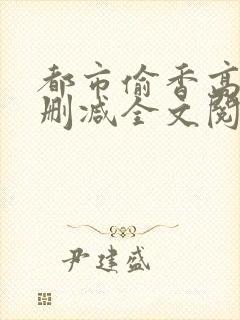 都市偷香高
删减全文阅
尹建盛